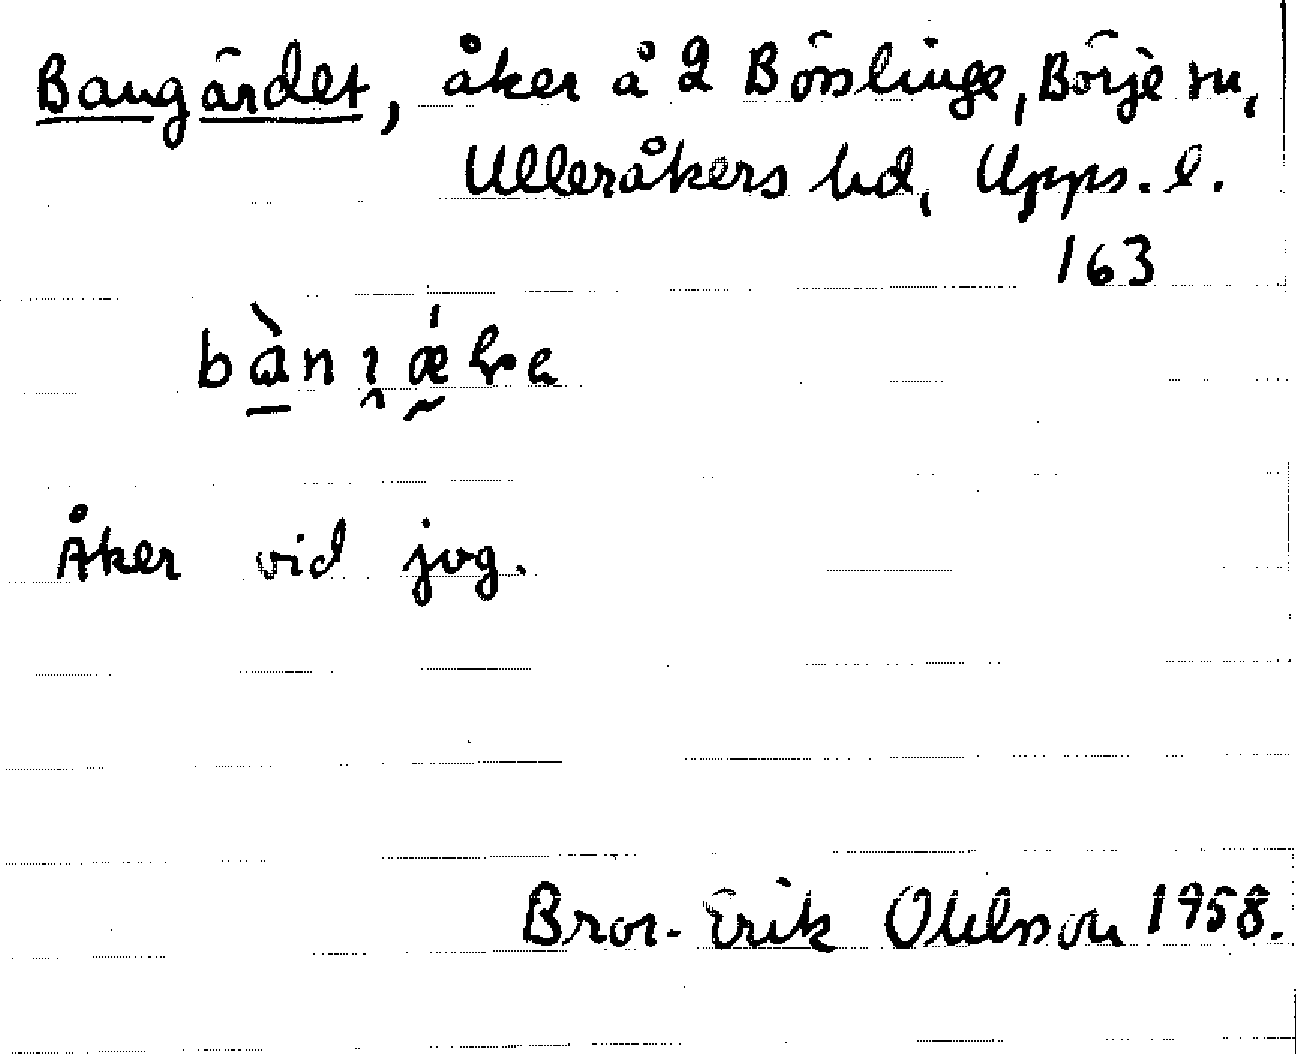 Bangärdet, åker å 2 Börslinge, Börje sn,
Ulleråkers hd, Upps. l.
163
Åker vid jvg.
Bror-Erik Ohlsson 1958.